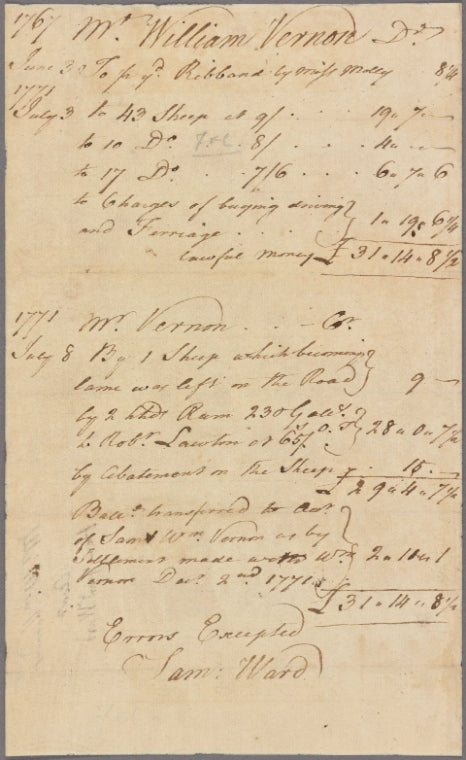 1767 Mr. William Vernon Dr.
June 30 To pr yd. Ribband by Miss Molly 8 1/4
1771
July 3 to 43 Sheep at 9/ . . . . 19 " 7 " —
to 10 Do. 8/ . . . . 4 " — " —
to 17 Do. . . . 7/6 . . . . 6 " 7 " 6
to Charges of buying driving }
and Ferriage . . . . } 1 " 19 " 6 1/4
lawful money £ 31 " 14 " 8 1/2
1771 Mr. Vernon . . . Cr.
July 8 By 1 Sheep which becoming }
lame was left on the Road } 9 —
by 2 hhds Rum 230 Galls. }
Robt. Lawton at 65/. O.T. } 28 " 0 " 7 1/2
by Abatement on the Sheep . 15 . —
£ 29 " 4 " 7 1/2
Balle. transferred to Acct.
of Saml Wm. Vernon as by
Settlement made with Wm. } 2 " 10 " 1
Vernon Decr. 2nd 1771
£ 31 " 14 " 8 1/2
Errors Excepted
Sam: Ward